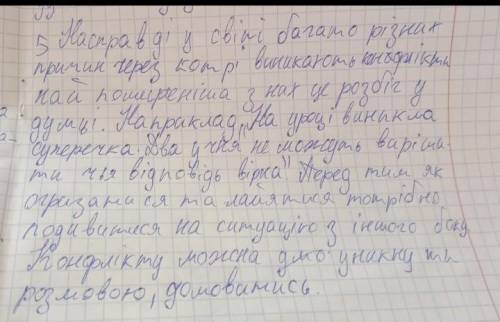 5 Насправді у світі багато різних
причин через котрі виникають конфлікти
най поширеніша з них це розбіг у
думці. Наприклад „На уроці виникла
суперечка. Два учня не можуть варіши-
ти чья відповідь вірна" Перед тим як
огризатися та лаятися потрібно
подивитися на ситуацію з іншого боку
Конфлікту можна уникнути
розмовою, домовитись.